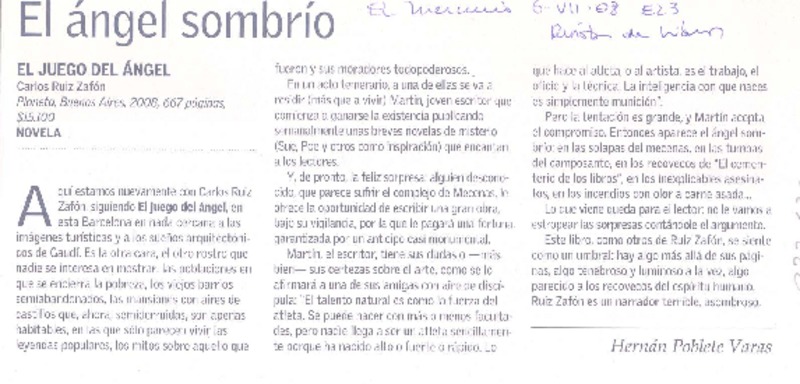 El ángel sombrío
El Mercurio 6-VII-08 E23
Revista de Libros
EL JUEGO DEL ÁNGEL
Carlos Ruiz Zafón
Planeta, Buenos Aires, 2008, 667 páginas,
$15.100
NOVELA
Aquí estamos nuevamente con Carlos Ruiz
Zafón, siguiendo El juego del ángel, en
esta Barcelona en nada cercana a las
imágenes turísticas y a los sueños arquitectóni-
cos de Gaudí. Es la otra cara, el otro rostro que
nadie se interesa en mostrar: las poblaciones en
que se encierra la pobreza, los viejos barrios
semiabandonados, las mansiones con aires de
castillos que, ahora, semiderruidos, son apenas
habitables, en las que sólo parecen vivir las
leyendas populares, los mitos sobre aquello que
fueron y sus moradores todopoderosos.
En un acto temerario, a una de ellas se va a
residir (más que a vivir) Martín, joven escritor que
comienza a ganarse la existencia publicando
semanalmente unas breves novelas de misterio
(Sue, Poe y otros como inspiración) que encantan
a los lectores.
Y, de pronto, la feliz sorpresa: alguien descono-
cido, que parece sufrir el complejo de Mecenas, le
ofrece la oportunidad de escribir una gran obra,
bajo su vigilancia, por la que le pagará una fortuna
garantizada por un anticipo casi monumental.
Martín, el escritor, tiene sus dudas o —más
bien— sus certezas sobre el arte, como se lo
afirmará a una de sus amigas con aire de discí-
pula: "El talento natural es como la fuerza del
atleta. Se puede nacer con más o menos faculta-
des, pero nadie llega a ser un atleta sencillamen-
te porque ha nacido alto o fuerte o rápido. Lo
que hace al atleta, o al artista, es el trabajo, el
oficio y la técnica. La inteligencia con que naces
es simplemente munición".
Pero la tentación es grande, y Martín acepta
el compromiso. Entonces aparece el ángel som-
brío: en las solapas del mecenas, en las tumbas
del camposanto, en los recovecos de "El cemen-
terio de los libros", en los inexplicables asesina-
tos, en los incendios con olor a carne asada...
Lo que viene queda para el lector: no le vamos a
estropear las sorpresas contándole el argumento.
Este libro, como otros de Ruiz Zafón, se siente
como un umbral: hay algo más allá de sus pági-
nas, algo tenebroso y luminoso a la vez, algo
parecido a los recovecos del espíritu humano.
Ruiz Zafón es un narrador terrible, asombroso.
Hernán Poblete Varas